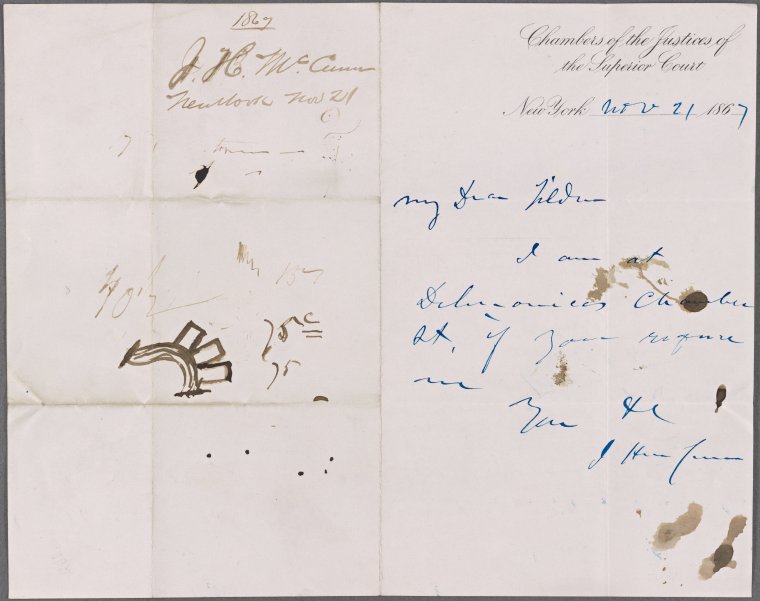 1867
J. H. McCunn
New York Nov 21
75c
75
Chambers of the Justices of
the Superior Court
New York Nov 21 1867
My Dear Tilden
I am at
Delmonicos Chamber
St, if you require
me
Yours &c
J H McCunn